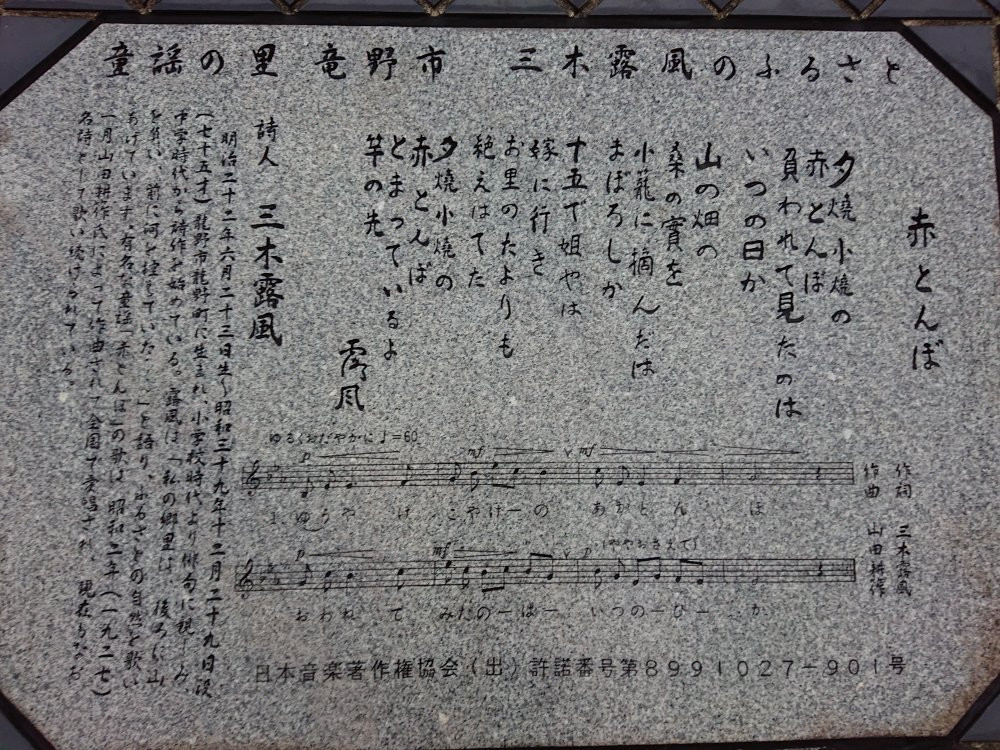 童謡の里 竜野市 三木露風のふるさと
赤とんぼ
夕焼小焼の
赤とんぼ
負われて見たのは
いつの日か
山の畑の
桑の實を
小籠に摘んだは
まぼろしか
十五で姐やは
嫁に行き
お里のたよりも
絶えはてた
夕焼小焼の
赤とんぼ
とまっているよ
竿の先
露風
詩人 三木露風
明治二十二年六月二十三日生～昭和三十九年十二月二十九日没
(七十五才)龍野市龍野町に生まれ、小学校時代より俳句に親しみ、
中学時代から詩作を始めている。露風は「私の郷里は、後ろに山
を負い、前に河を控していた」と語り、ふるさとの自然を歌い
あげています。有名な童謡「赤とんぼ」の歌は、昭和二年(一九二七)
一月山田耕作氏によって作曲されて全国で愛唱され、現在もなお
名詩として歌い続けられている。
作詞 三木露風
作曲 山田耕作
ゆるくおだやかに ♩=60
p mf mf
1. ゆうや け こやけーの あかとん ぼ
p mf p (ややおさえて)
おわれ て みたのーはー いつのーひー か
日本音楽著作権協会(出)許諾番号第8991027-901号